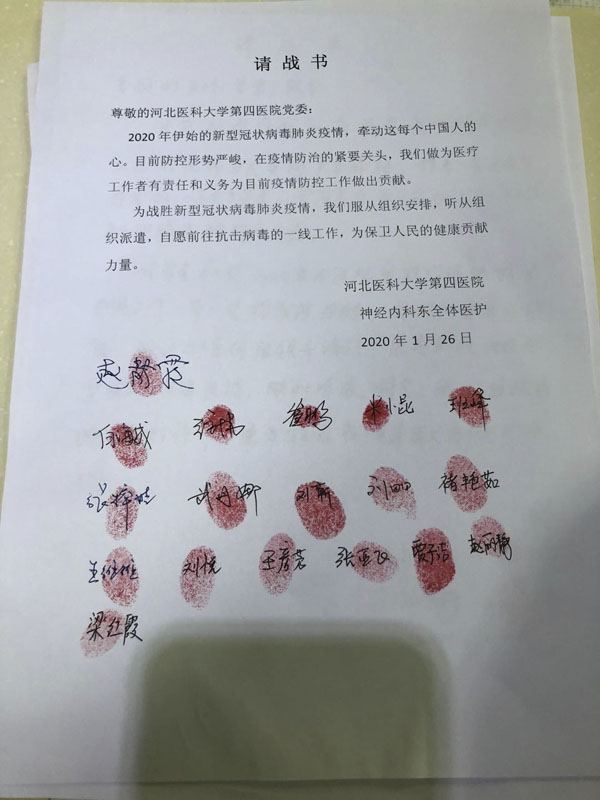 请战书
尊敬的河北医科大学第四医院党委：
2020年伊始的新型冠状病毒肺炎疫情，牵动这每个中国人的
心。目前防控形势严峻，在疫情防治的紧要关头，我们做为医疗
工作者有责任和义务为目前疫情防控工作做出贡献。
为战胜新型冠状病毒肺炎疫情，我们服从组织安排，听从组
织派遣，自愿前往抗击病毒的一线工作，为保卫人民的健康贡献
力量。
河北医科大学第四医院
神经内科东全体医护
2020年1月26日
赵静霞
徐鹏
刘新 刘四 褚艳茹
刘悦 王彦茗 张亚飞 贾子洁 赵丽静
梁红霞